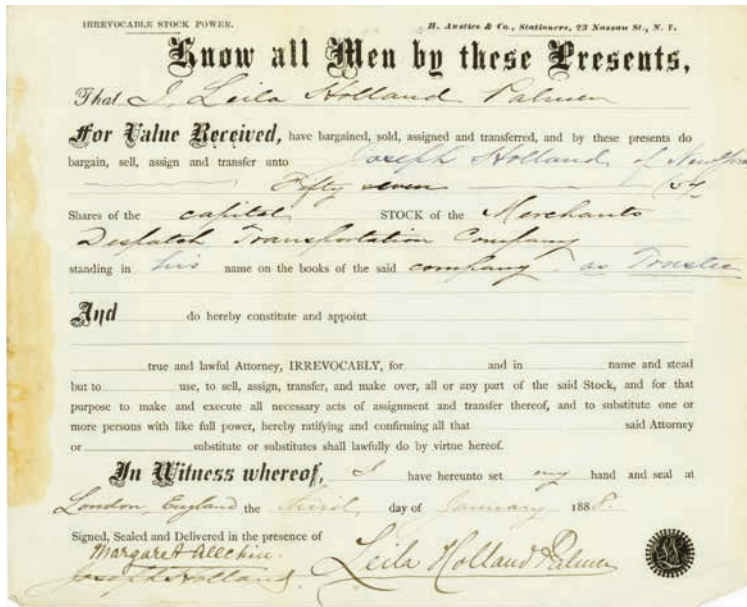 IRREVOCABLE STOCK POWER. H. Anstice & Co., Stationers, 23 Nassau St., N. Y.
Know all Men by these Presents,
That I, Leila Holland Palmer
For Value Received, have bargained, sold, assigned and transferred, and by these presents do
bargain, sell, assign and transfer unto Joseph Holland of New
Fifty seven (57
Shares of the capital STOCK of the Merchants
Despatch Transportation Company
standing in his name on the books of the said company. as Trustee
And do hereby constitute and appoint
true and lawful Attorney, IRREVOCABLY, for and in name and stead
but to use, to sell, assign, transfer, and make over, all or any part of the said Stock, and for that
purpose to make and execute all necessary acts of assignment and transfer thereof, and to substitute one or
more persons with like full power, hereby ratifying and confirming all that said Attorney
or substitute or substitutes shall lawfully do by virtue hereof.
In Witness whereof, I have hereunto set my hand and seal at
London, England the third day of January 1888.
Signed, Sealed and Delivered in the presence of
Margaret Allchin.
Joseph Holland. Leila Holland Palmer